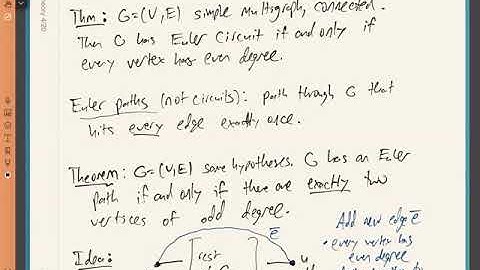 Thm: G=(V,E) simple multigraph, connected.
Then G has Euler Circuit if and only if
every vertex has even degree.
Euler paths (not circuits): path through G that
hits every edge exactly once.
Theorem: G=(V,E) same hypotheses. G has an Euler
path if and only if there are exactly two
vertices of odd degree.
Add new edge e̅
e̅
• every vertex has
even degree
Idea:
rest
u